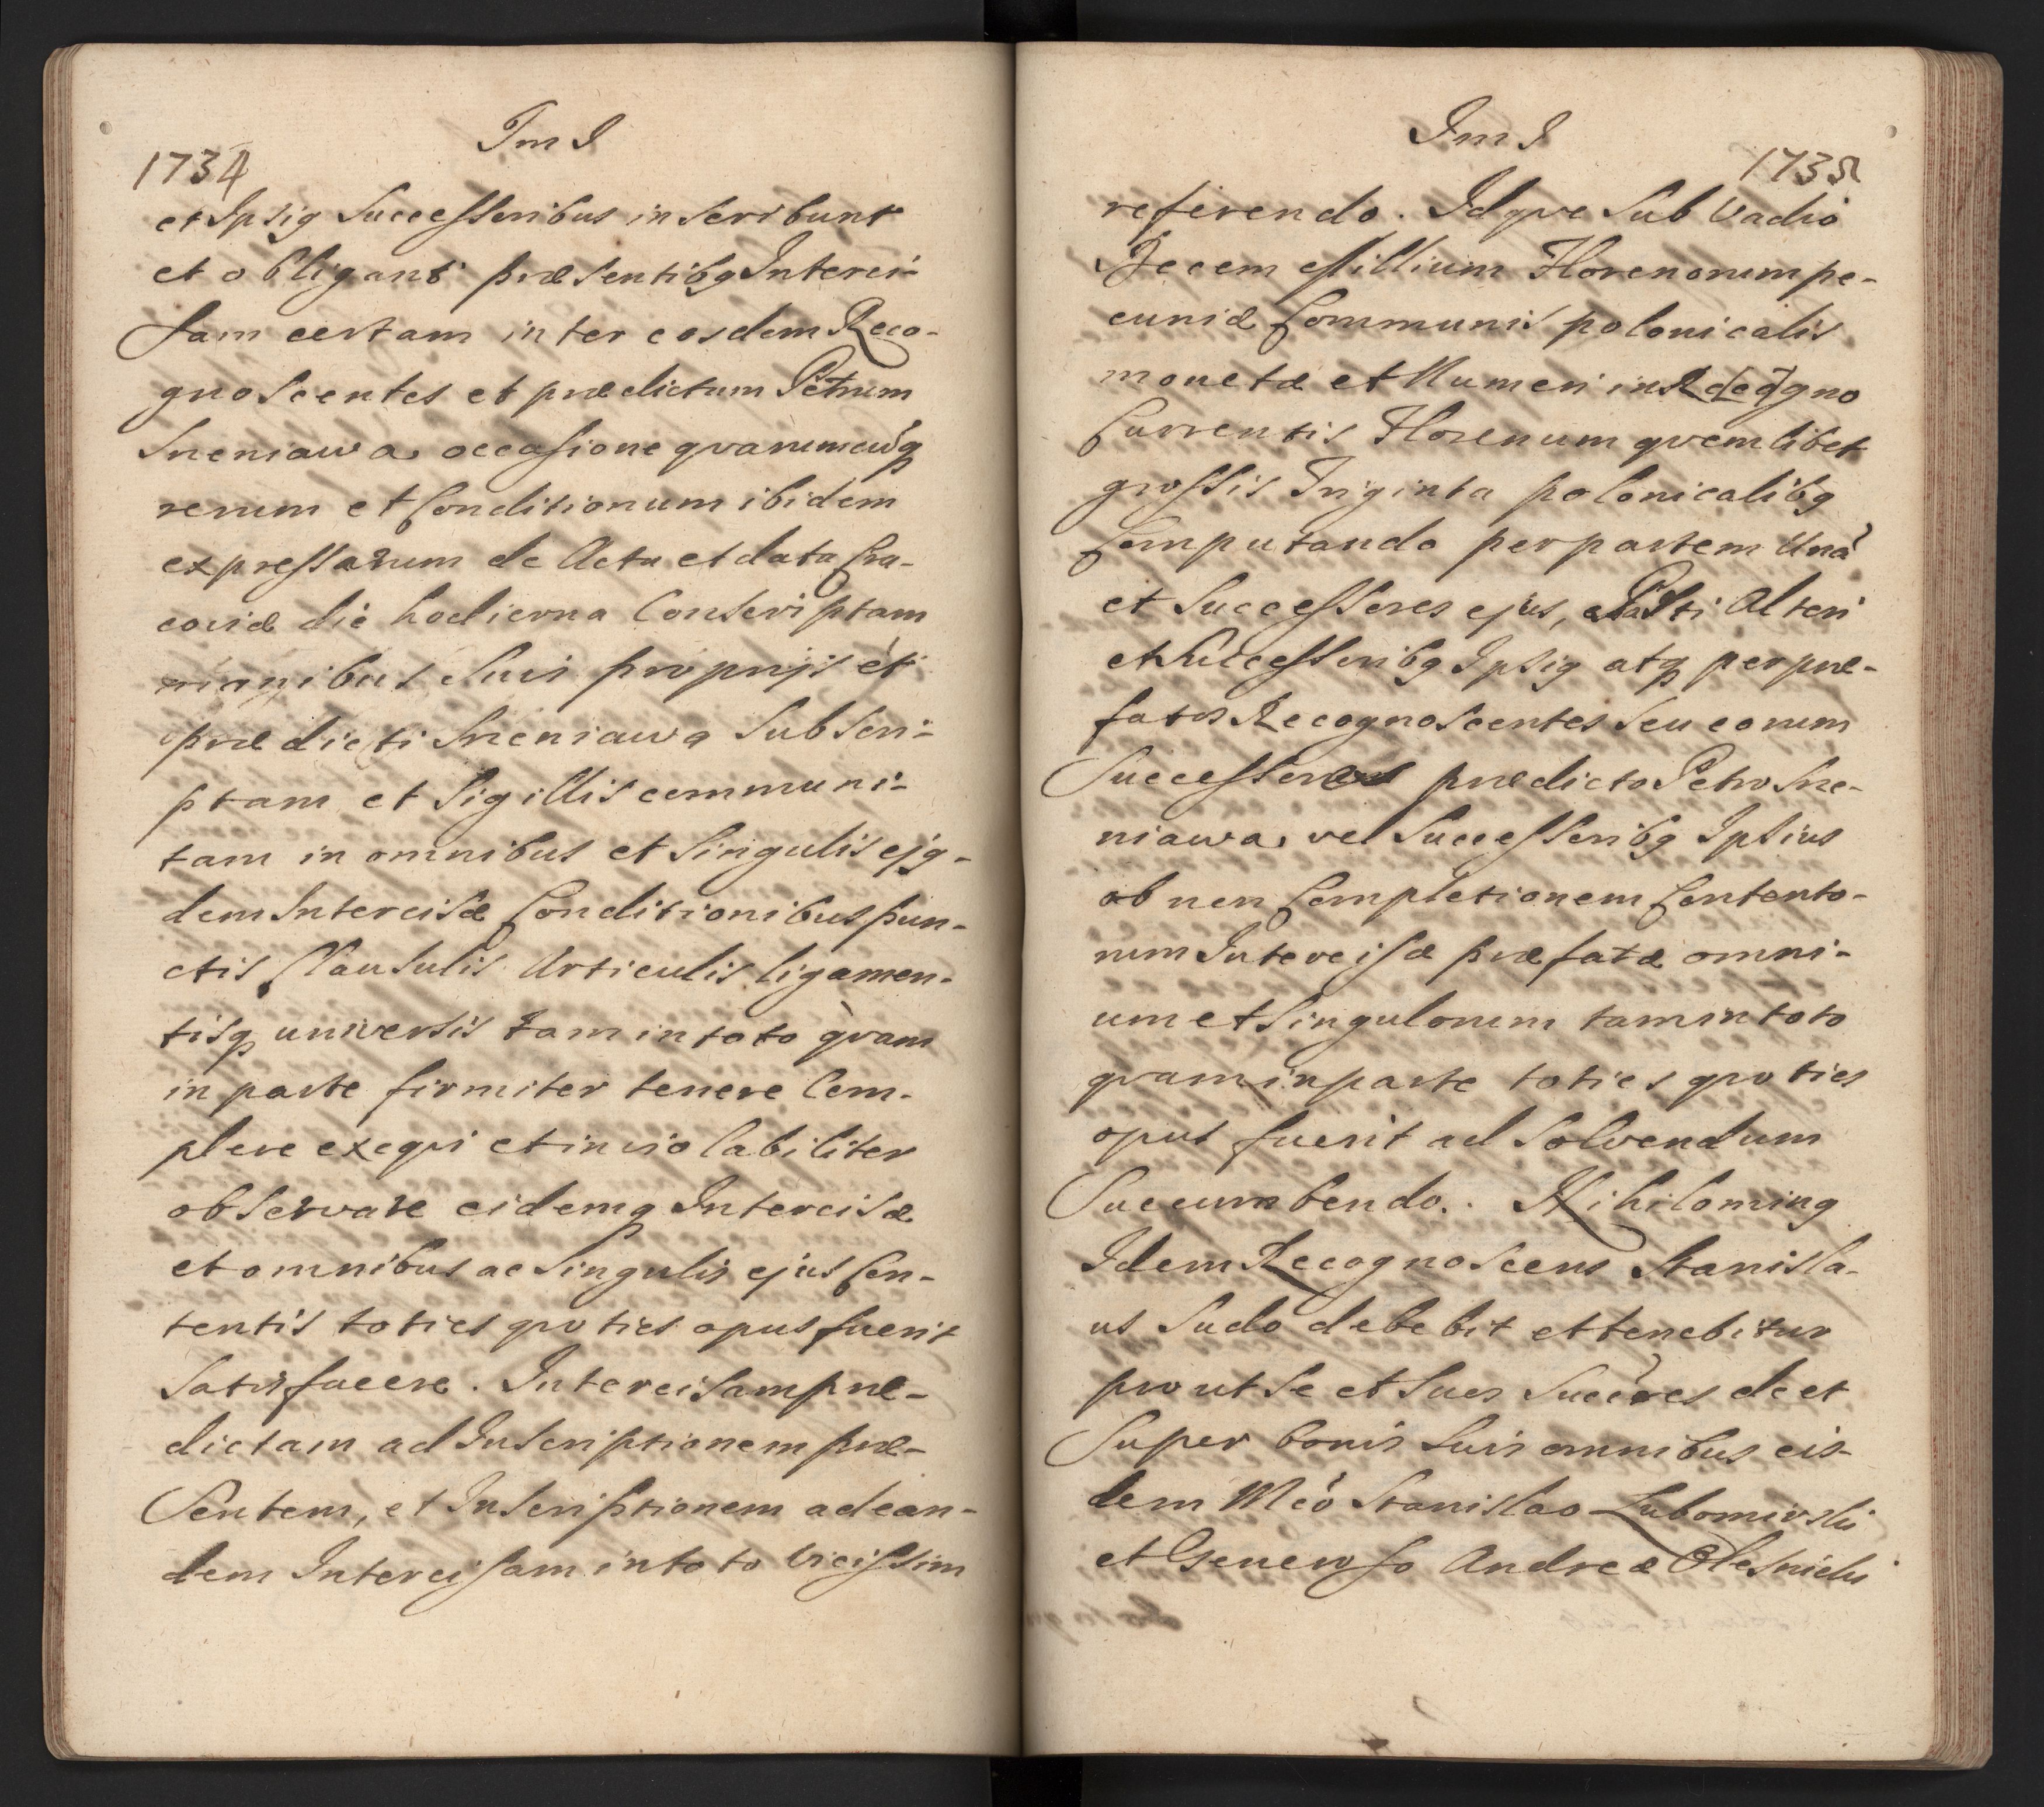 Im I
1734
et Ipsig Successoribus inscribunt
et obligant præsentibg Interci-
sam certam inter eosdem Reco-
gnoscentes et prædictum Petrum
Sreniawa occasione qvarumcūq
rerum et Conditionum ibidem
expressarum de Actu et data Cra-
coviæ die hodierna Conscriptam
manibus suis proprijs et
prædicti Sreniawa subscri-
ptam et sigillis communi-
tam in omnibus et singulis ejg-
dem Intercisæ Conditionibus pun-
ctis Clausulis Articulis ligamen-
tisq universis tam in toto qvam
in parte firmiter tenere Com-
plere exeqvi et inviolabiliter
observare eidemq Intercisæ
et omnibus ac singulis ejus Con-
tentis toties qvoties opus fuerit
satisfacere. Intercisam præ-
dictam ad Inscriptionem præ-
sentem, et Inscriptionem ad ean-
dem Intercisam in toto vicissim
Im I
1735
referendo. Idqve sub Vadio
Decem Millium Florenorum pe-
cuniæ Communis polonicalis
monetæ et Numeri in Regno
Currentis Florenum qvemlibet
grossis Triginta polonicalibg
Computando per partem Unā
et Successores ejus, Parti Alteri
et Successoribg Ipsig atq per præ-
fatos Recognoscentes seu eorum
Successores prædicto Petro Sre-
niawa vel Successoribg Ipsius
ob non Completionem Contento-
rum Intercisæ præfatæ omni-
um et singulorum tam in toto
qvam in parte toties qvoties
opus fuerit ad solvendum
Succumbendo. Nihiloming
Idem Recognoscens Stanisla-
us Sudo debebit et tenebitur
prout se et suos Succres de et
super bonis suis omnibus eis-
dem Mco Stanislao Lubomirski
et Generoso Andreæ Olesnicki